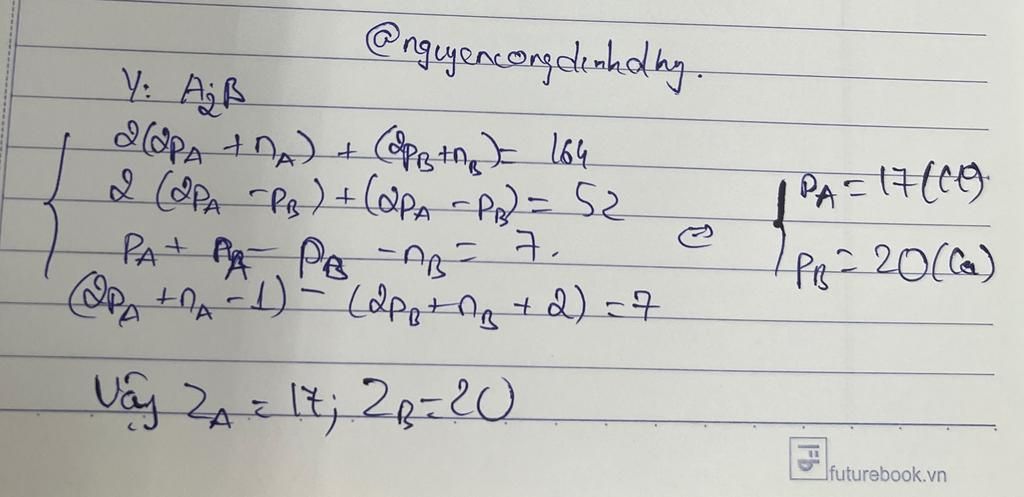 @nguyencongdinhdhg.
Y: A₂B
2(2pA + nA) + (2pB + nB) = 164
2 (2pA - pB) + (2pA - pB) = 52
pA + nA - pB - nB = 7.
(2pA + nA - 1) - (2pB + nB + 2) = 7
⇔
pA = 17 (Cl)
pB = 20 (Ca)
Vậy ZA = 17; ZB = 20
futurebook.vn